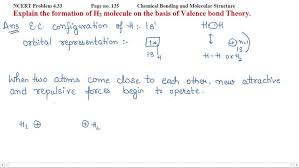 NCERT Problem 4.33 Page no. 135 Chemical Bonding and Molecular Structure
Explain the formation of H₂ molecule on the basis of Valence bond Theory.
Ans E.C. configuration of H :- 1s¹
orbital representation :-
1s¹
H-H or H₂
When two atoms come close to each other, new attractive
and repulsive forces begin to operate.